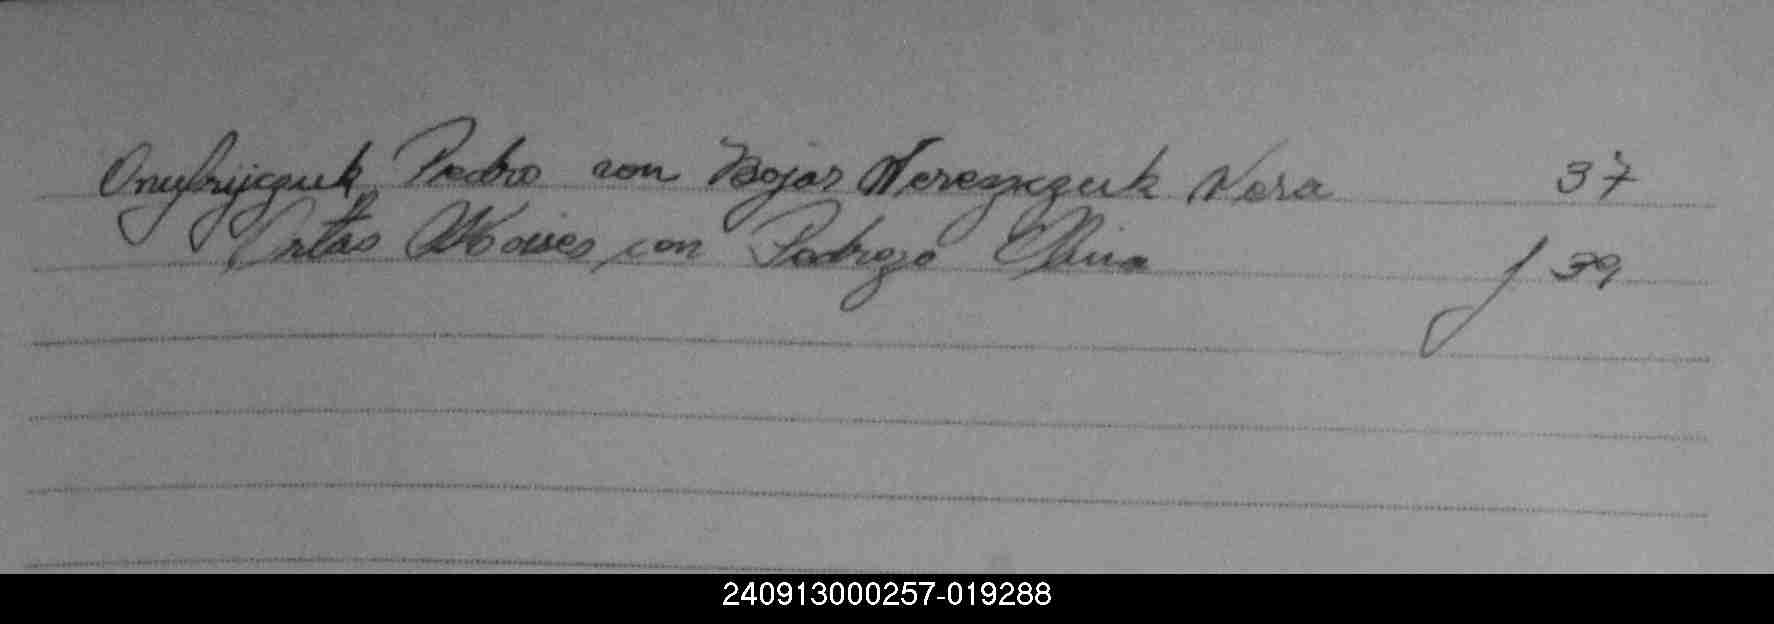 Onyfrijczuk Pedro con Bojar Nereszczuk Vera 37
Moises con Pedrozo f 39
240913000257-019288